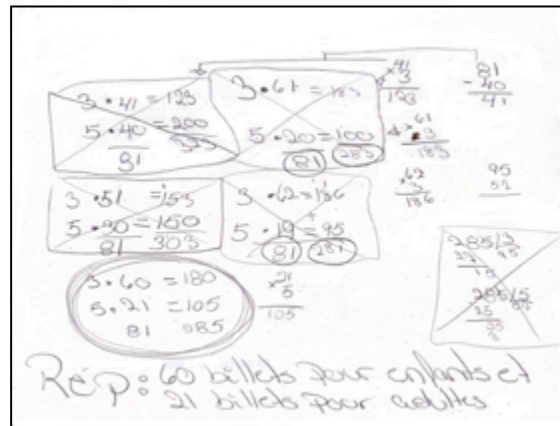 3 • 41 = 123
5 • 40 = 200
81
3 • 61 = 183
5 • 20 = 100
81 283
× 41
3
123
81
- 40
41
× 61
3
183
3 • 51 = 153
5 • 30 = 150
81 303
3 • 62 = 186
5 • 19 = 95
81 281
× 62
3
186
95
3 • 60 = 180
5 • 21 = 105
81 285
× 21
5
105
285/3
95
285/5
25
Rép: 60 billets pour enfants et
21 billets pour adultes